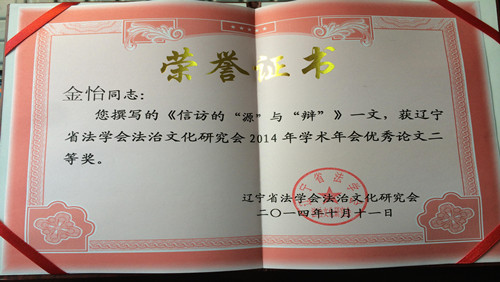 荣誉证书
金怡同志：
您撰写的《信访的“源”与“辩”》一文，获辽宁
省法学会法治文化研究会2014年学术年会优秀论文二
等奖。
辽宁省法学会法治文化研究会
二〇一四年十月十一日